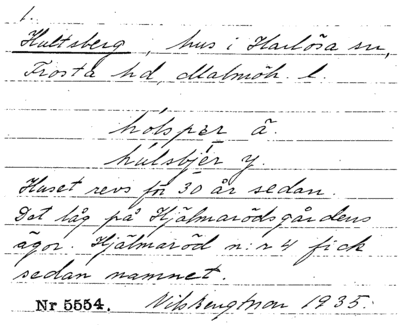 1.
Hultsberg, hus i Harlösa sn,
Frosta hd, Malmöh. l.
hólspɛr ä.
húlsbjér y.
Huset revs för 30 år sedan.
Det låg på Hjälmarödsgårdens
ägor. Hjälmaröd n:r 4 fick
sedan namnet.
Nr 5554. Nils Bengtsson 1935.